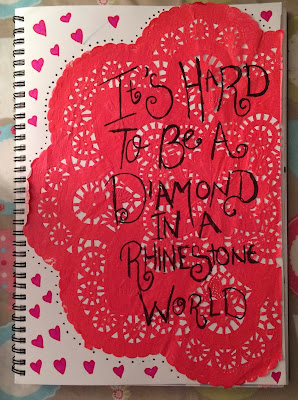 It's Hard
To Be A
Diamond
In A
Rhinestone
World